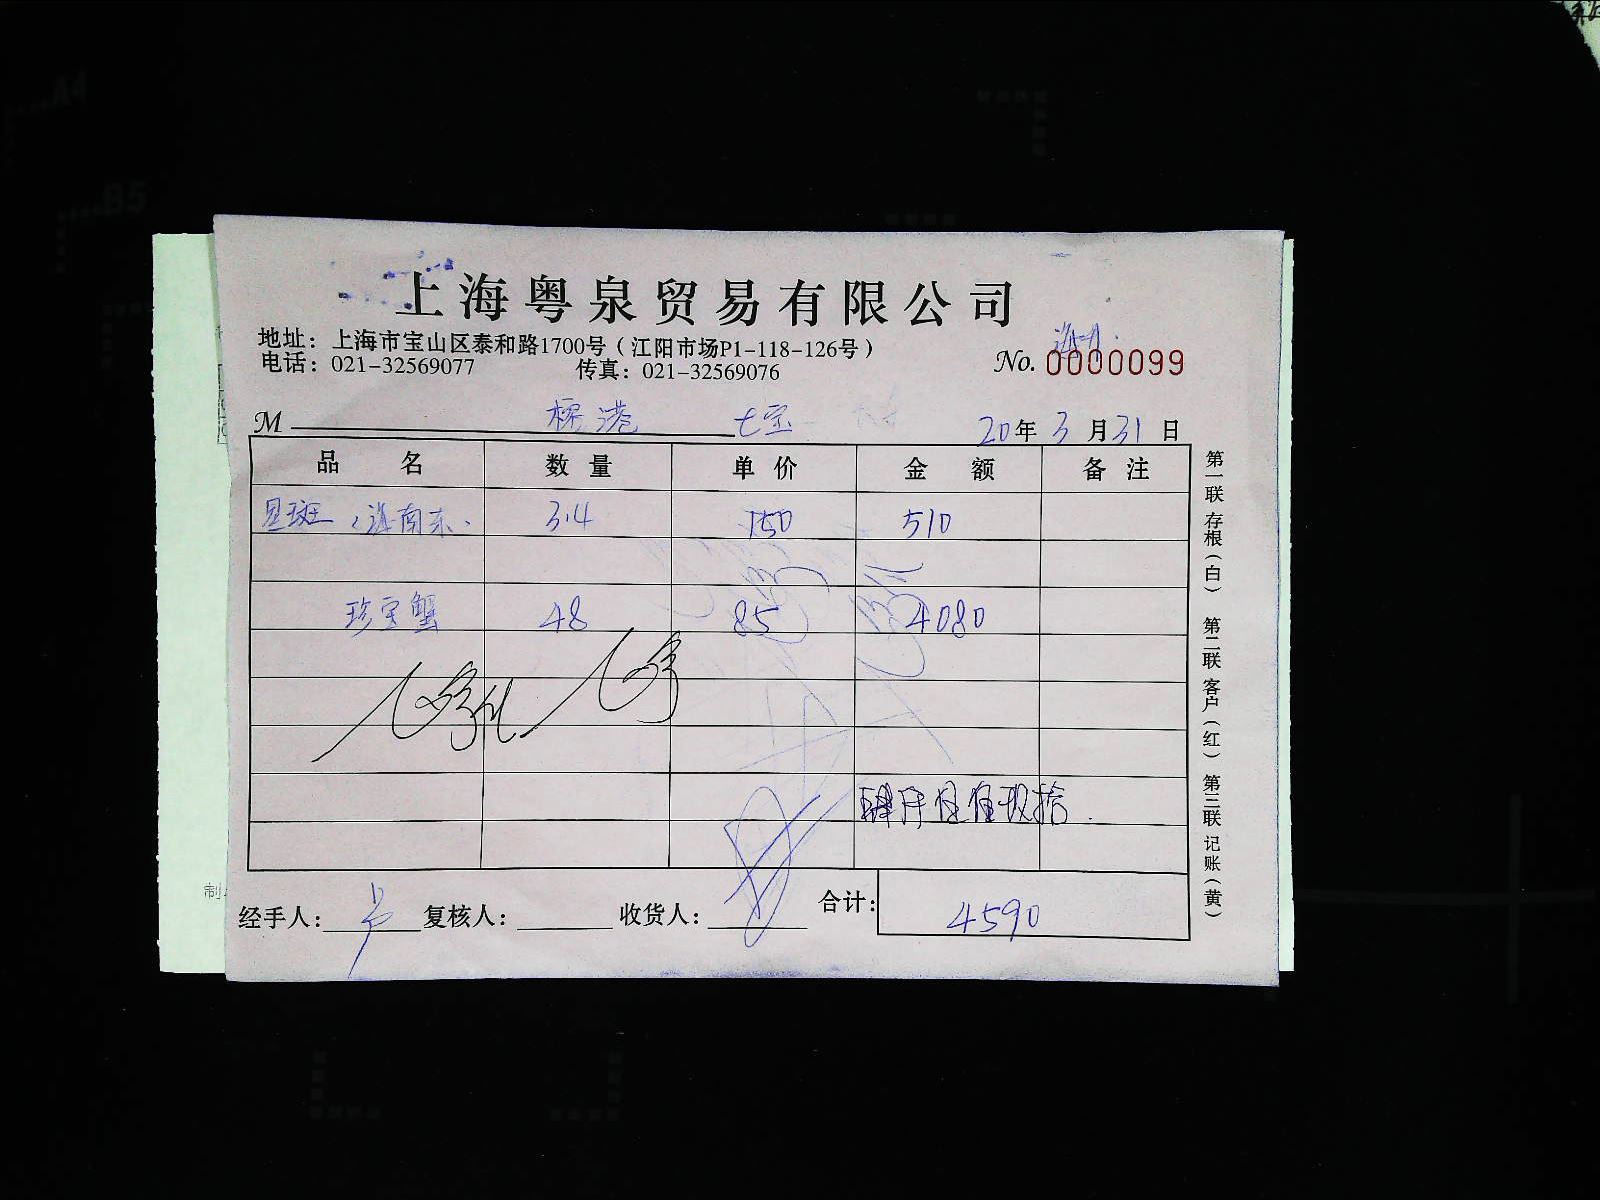 上海粤泉贸易有限公司
地址：上海市宝山区泰和路1700号（江阳市场P1-118-126号）
电话：021-32569077 传真：021-32569076
No. 0000099
M 七宝 20年 3月 31日
品 名 数 量 单 价 金 额 备 注
星斑（海南东） 3.4 150 510
珍宝蟹 48 85 4080
肆仟伍佰玖拾
经手人： 复核人： 收货人： 合计： 4590
第一联 存根（白） 第二联 客户（红） 第三联 记账（黄）
A4
B5
制